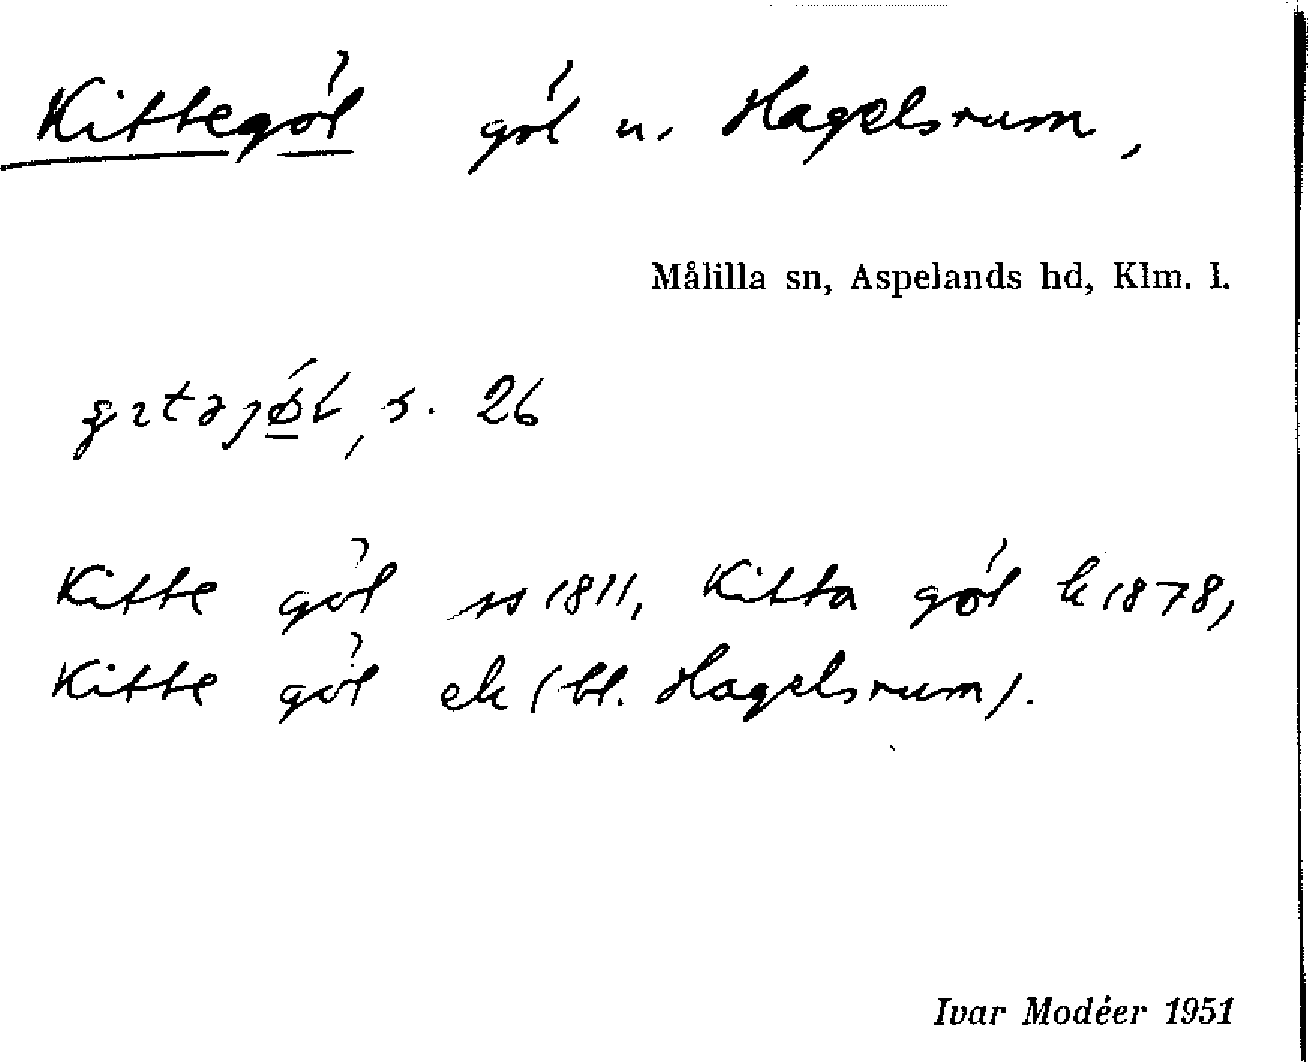 Kittegöl göl u. Hagelsrum,
Målilla sn, Aspelands hd, Klm. l.
s. 26
Kitte göl ss 1811, Kitta göl k 1878,
Kitte göl ek (bl. Hagelsrum).
Ivar Modéer 1951